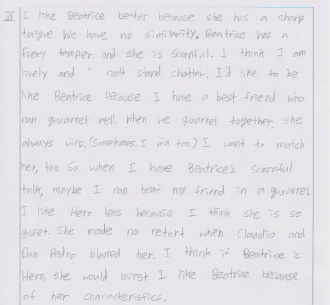 III I like Beatrice better because she has a sharp
tongue. We have no similarity. Beatrice has a
fiery temper. and she is scornful. I think I am
lively and I can't stand chatter. I'd like to be
like Beatrice because I have a best friend who
can quvarrel well. When we quarrel together, she
always wins. (Sometimes. I win too) I want to match
her, too. So, when I have Beatrice's scornful
talk, maybe I can beat my friend in a quvarrel.
I like Hero less because I think she is so
quiet. She made no retort when Claudio and
Don Pedro blamed her. I think if Beatrice is
Hero, she would burst. I like Beatrice because
of her characteristics.